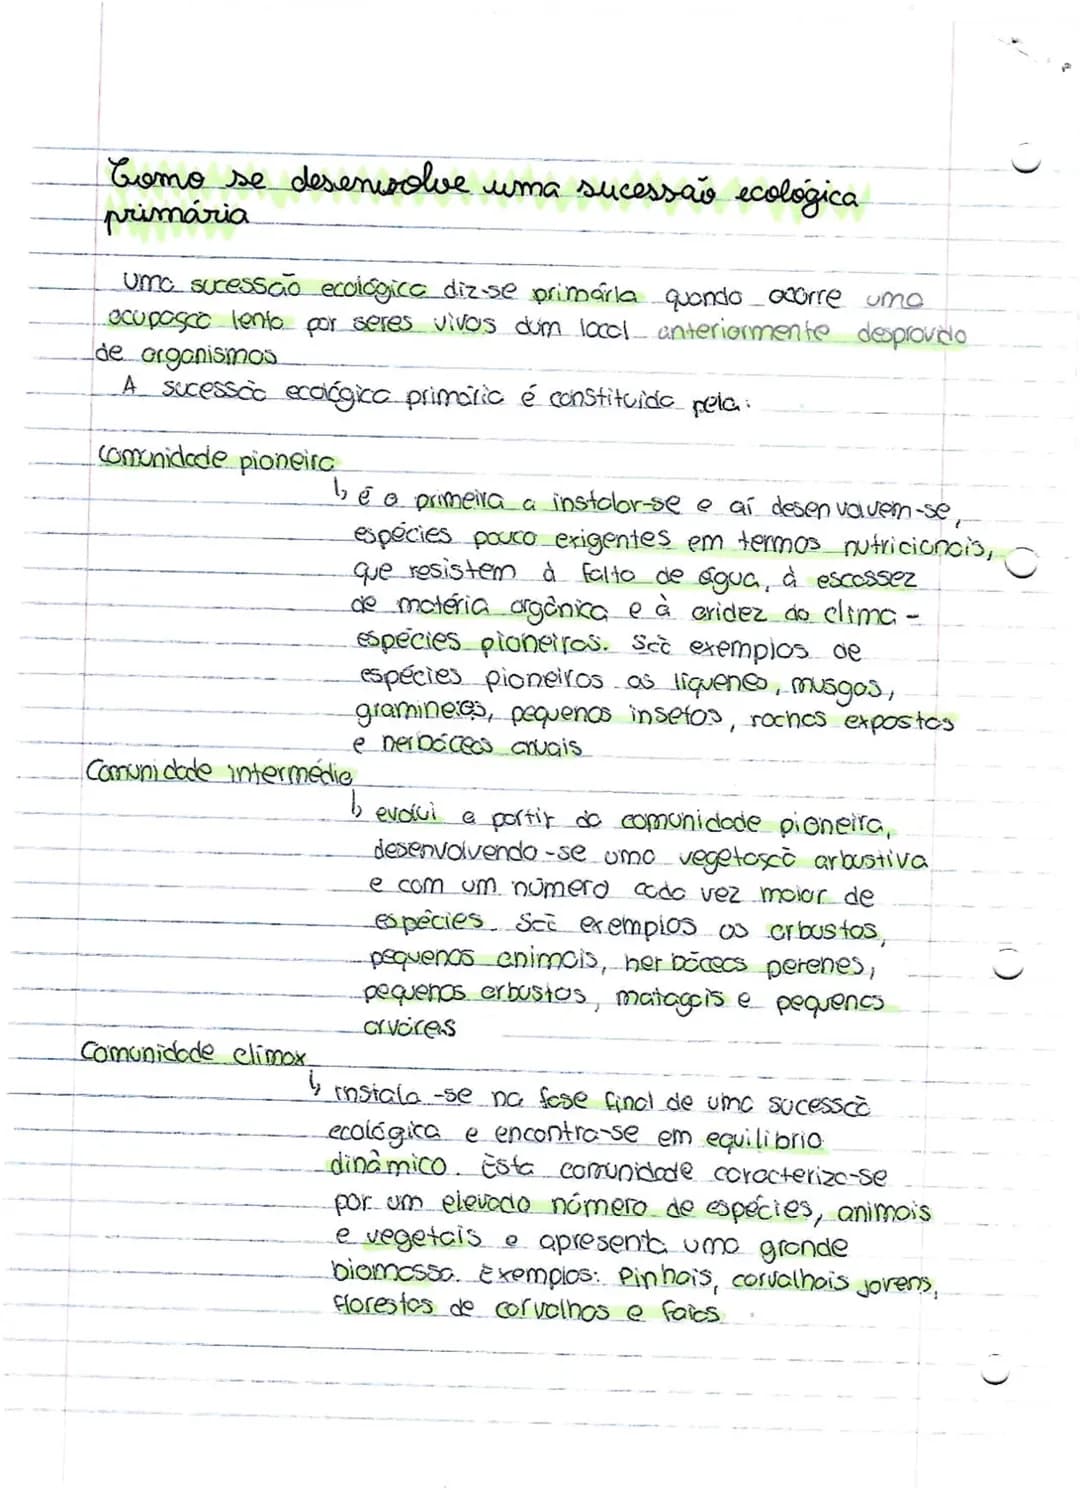 Como se desenvolve uma sucessão ecológica
primária
uma sucessão ecológica diz-se primária quando ocorre uma
ocupação lenta por seres vivos dum local anteriormente desprovido
de organismos
A sucessão ecológica primária é constituída pela:
comunidade pioneira
↳ é a primeira a instalar-se e aí desenvolvem-se,
espécies pouco exigentes em termos nutricionais,
que resistem à falta de água, à escassez
de matéria orgânica e à aridez do clima -
espécies pioneiras. São exemplos de
espécies pioneiras os líquenes, musgos,
gramineas, pequenos insetos, rochas expostas
e herbáceas anuais
Comunidade intermédia
↳ evolui a partir da comunidade pioneira,
desenvolvendo-se uma vegetação arbustiva
e com um número cada vez maior de
espécies. São exemplos os arbustos,
pequenos animais, herbáceas perenes,
pequenos arbustos, matagais e pequenas
árvores
Comunidade climax
↳ instala-se na fase final de uma sucessão
ecológica e encontra-se em equilibrio
dinâmico. Esta comunidade caracteriza-se
por um elevado número de espécies, animais
e vegetais e apresenta uma grande
biomassa. Exemplos: Pinhais, carvalhais jovens,
florestas de carvalhos e faias